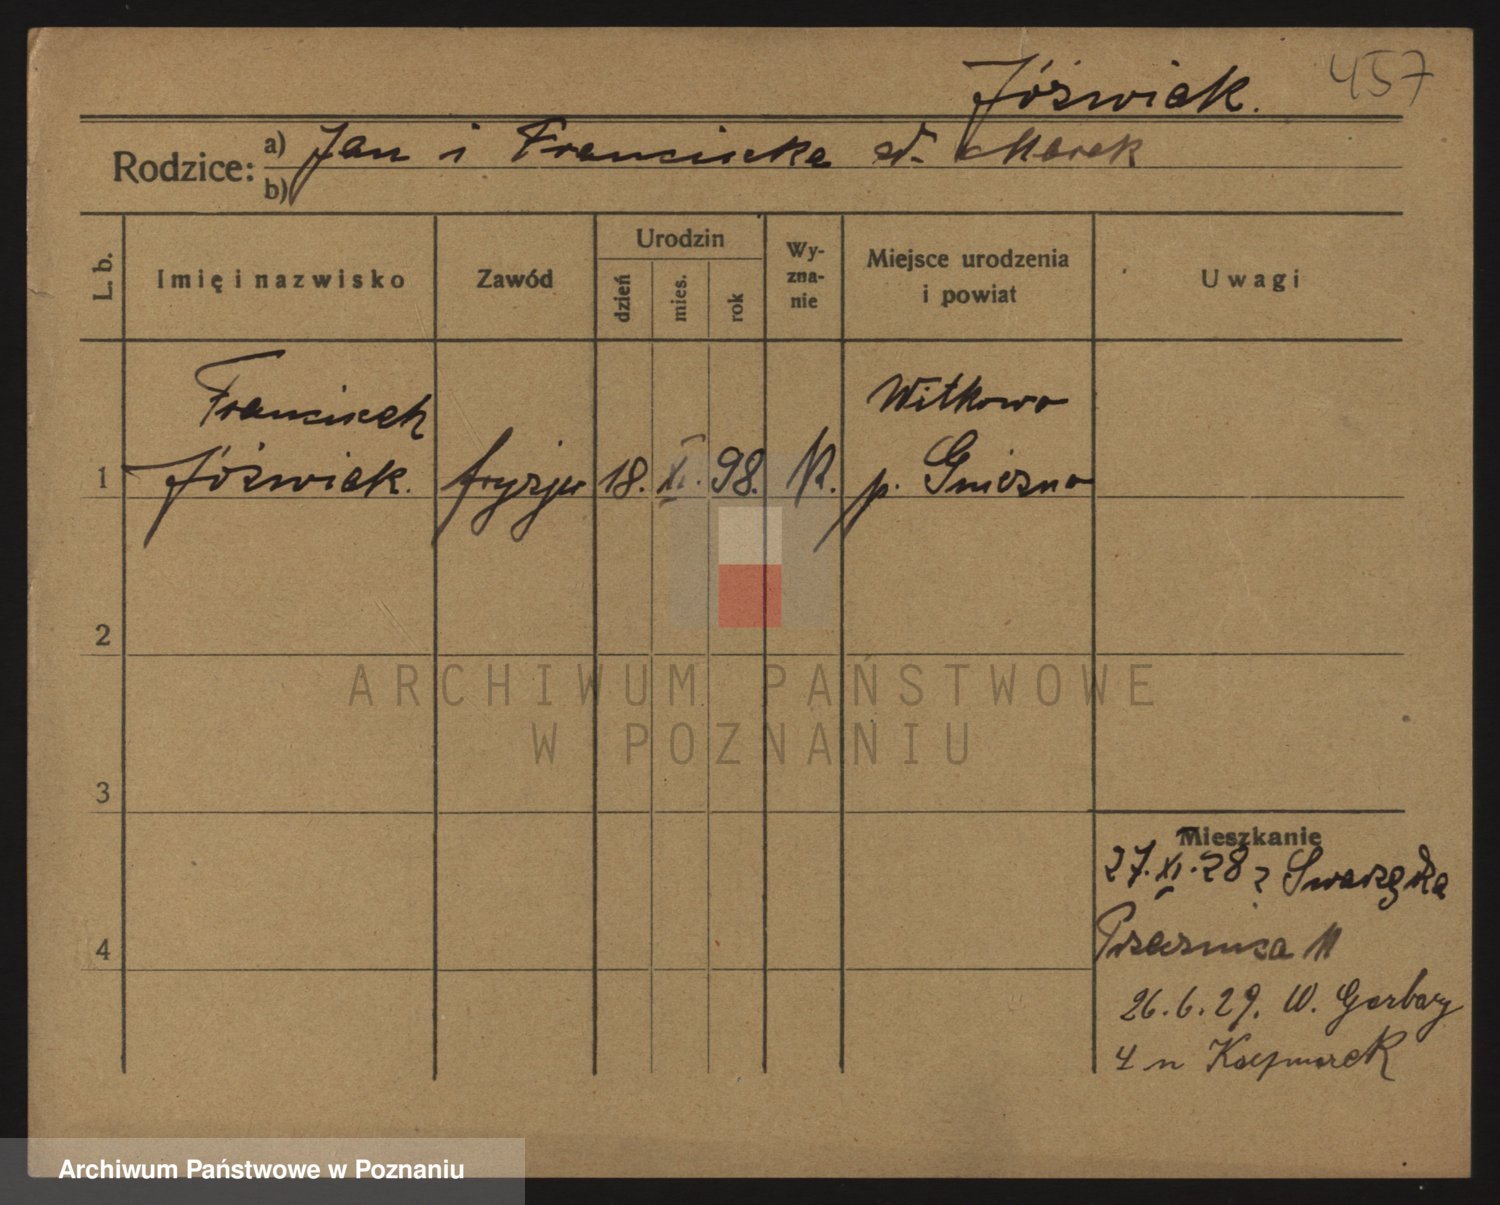 Jóźwiak. 457
Rodzice: a) Jan i Franciszka zd. Marek
b)
L. b.
Imię i nazwisko
Zawód
Urodzin
dzień
mies.
rok
Wy-
zna-
nie
Miejsce urodzenia
i powiat
Uwagi
Franciszek
1 Jóźwiak.
fryzjer
18. XI. 98.
K.
Witkowo
p. Gniezno
2
3
4
Mieszkanie
27.XI.28 z Swarzędza
11
26.6.29. W. Garbary
4 n Kaczmarek
ARCHIWUM PAŃSTWOWE
W POZNANIU
Archiwum Państwowe w Poznaniu